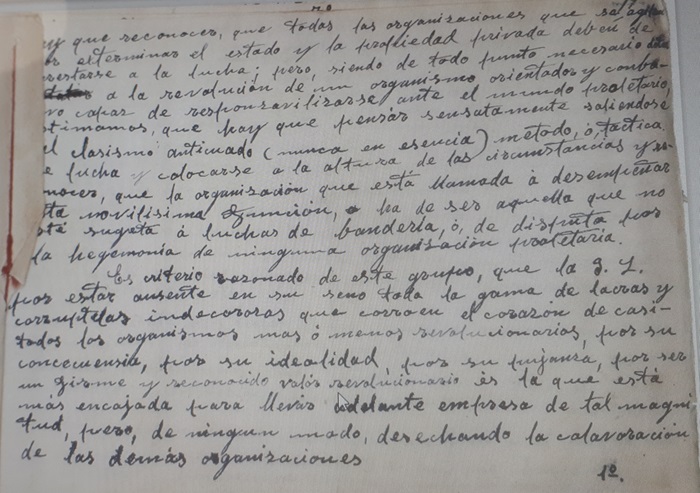 ay que reconocer, que todas las organizaciones que
esterminar el estado y la propiedad privada deben de
prestarse a la lucha; pero, siendo de todo punto necesario
a la revolución de un organismo orientador y comba-
vo capaz de responsavilizarse ante el mundo proletario
stimamos, que hay que pensar sensatamente saliendose
el clasismo anticuado (nunca en esencia) metodo, ó, táctica
e lucha y colocarse a la altura de las circunstancias y re-
noces, que la organización que está llamada á desempeñar
sta novilisima función, ha de ser aquella que no
sté sugeta á luchas de bandería, ó, de disputa por
la hegemonia de ninguna organización proletaria.
Es criterio razonado de este grupo, que la J. L.
por estar ausente en su seno toda la gama de lacras y
corruptelas indecorosas que corroen el corazón de casi-
todos los organismos mas ó menos revolucionarios, por su
concecuensia, por su idealidad, por su pujanza, por ser
un firme y reconocido valor revolucionario és la que está
más encajada para llevar adelante empresa de tal magni
tud, pero, de ningun modo, desechando la calavoración
de las demás organizaciones
1º.